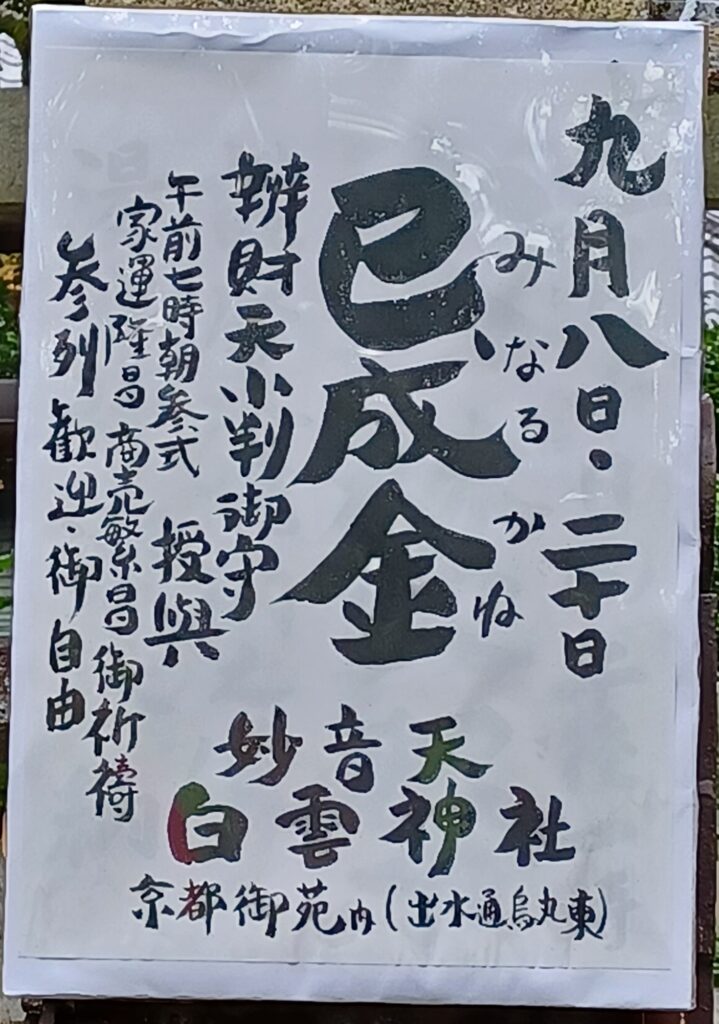 九月八日・二十日
みなるかね
巳成金
辨財天小判御守
授與
午前七時朝参式
家運隆昌商売繁昌御祈祷
参列歓迎・御自由
妙音天
白雲神社
京都御苑内(出水通烏丸東)